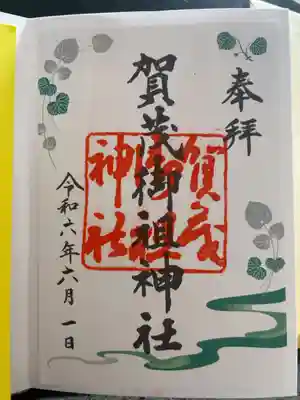 奉拝
賀茂御祖神社
賀茂
御祖
神社
令和六年六月一日